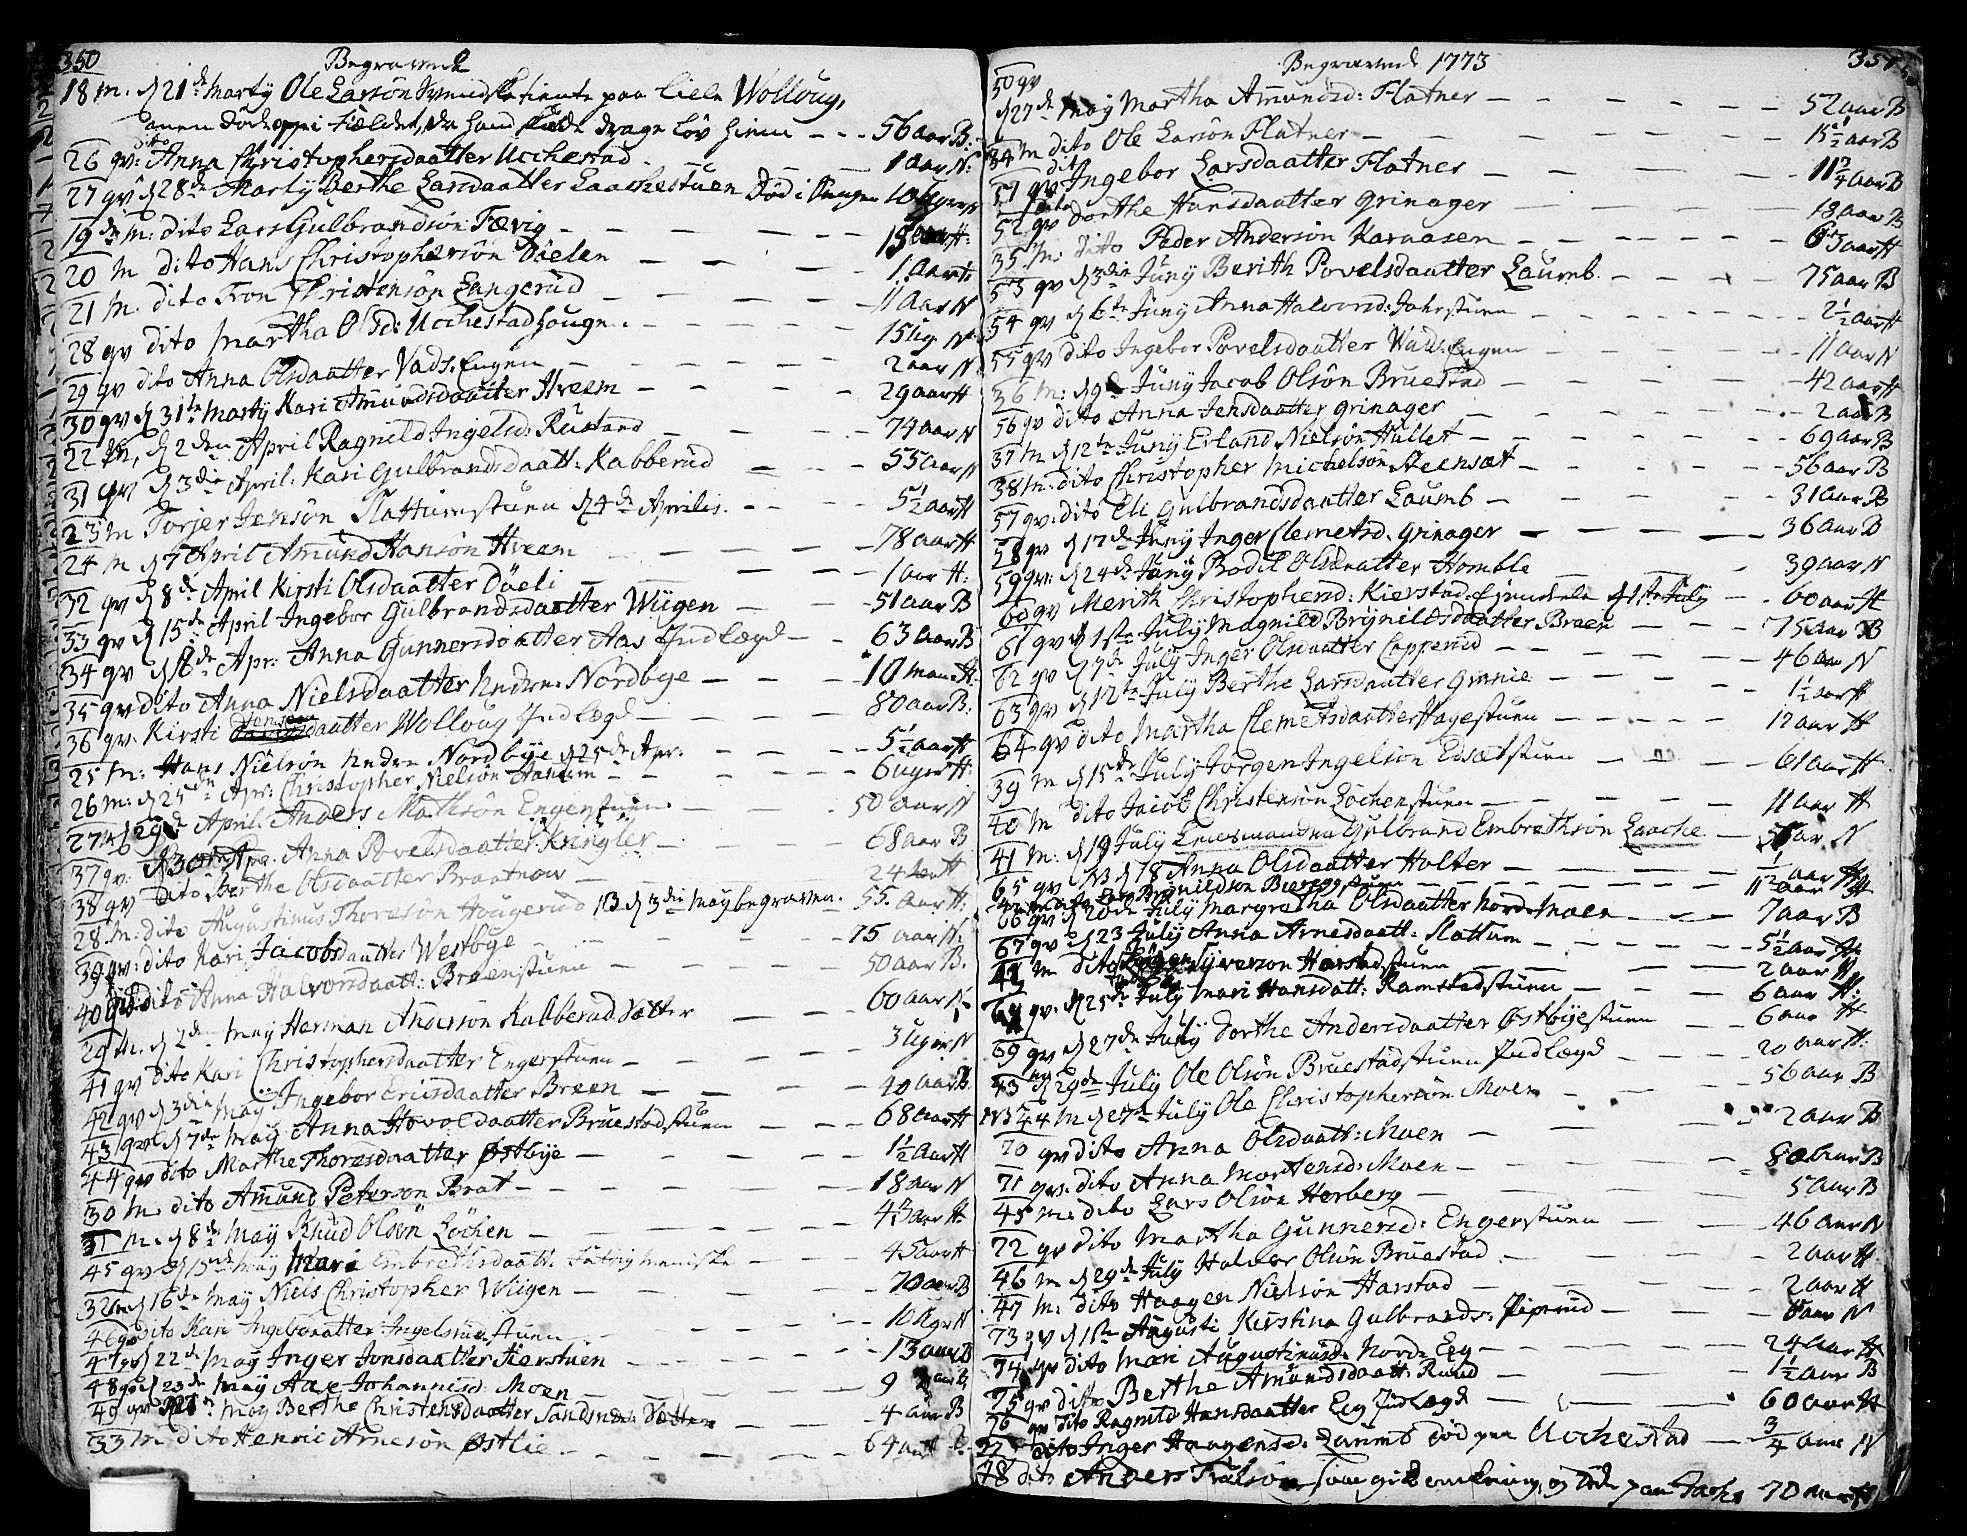 350
Begravede
18 m. d 21de Marty Ole Larsön Svendske tiente paa Lille Wolloug,
men döde oppi Fieldet, da hand skulde drage Löv hiem - - - 56 aar B:
26 qv: dito Anna Christophersdaatter Ucchestad - 1 aar N:
27 qv d 28de Marty Berthe Larsdaatter Laachestuen Död i Sengen 10 Uger N
19 m: dito Lars Gulbrandsön Fævig - - 15 aar H:
20 m dito Hans Christophersön Döelen - - 1 aar H:
21 m. dito Tron Christensön Langerud - - 11 aar N
28 qv dito Martha Olsd: Ucchestadhougen - - 15 Ug N:
29 qv dito Anna Olsdaatter Vads:Eugen - - 2 aar N.
30 qv d 31te Marty Kari Amundsdaatter Hveem - - 29 aar H
22 m, d 2den April Ragnild Ingelsd: Rustand - - 74 aar N
31 qv d 3die April: Kari Gulbrandsdaatt: Kabberud - - 55 aar N
23 m Torjer Jensön Slattumstuen d 4de Aprilis. - - 5½ aar H
24 m d 7 April Amund Hansön Hveem - - 78 aar H
32 qv d 8de April Kirsti Olsdaatter Döeli - - 1 aar H:
33 qv d 15de April Ingebor Gulbrandsdaatter Wiigen - - 51 aar B
34 qv d 18de Apr: Anna Gunnersdaatter Aas Indlægd - - 63 aar B
35 qv dito Anna Nielsdaatter Nedre: Nordbye - - 10 man: H.
36 qv: Kirsti Jensdaatter Wolloug Indlægd - - 80 aar B:
25 m: Hans Nielsön Nedre Nordbye d 25de Apr: - - 5½ aar H
26 m: d 25de Apr: Christopher Nielsön - - 6 uger H:
27 d 29de April. Anders Mathsön Engerstuen. - - 50 aar N
37 qv: d 30te Apr. Anna Povelsdaatter Kringler - - 68 aar B
38 qv dito Berthe Olsdaatter Braatnou - - 24 aar H
28 m: dito Augustinus Thoresön Hougerud 13 d 3die May begraven. 55 aar H:
39 qv: dito Kari Jacobsdaatter Westbye - - 75 aar N.
40 qv dito Anna Halvorsdaatt: Breenstuen - - 50 aar B.
29 m. d 2den May Herman Andersön Kabberud Sætter - - 60 aar N.
41 qv dito Kari Christophersdaatter Engerstuen - - 3 Uger N
42 qv d 3die May Ingebor Ericsdaatter Breen - - 40 aar B.
43 qv d 7de May Anna Hovoldaatter Bruestadstuen - - 68 aar H
44 qv dito Marthe Thoresdaatter Østbye - - 1½ aar H
30 m. dito Amund Petersön Brat - - 18 aar N
31 m. d 8de May Knud Olsön Löchen - - 43 aar H
45 qv d 15de May Mari Embrethsdaatt. Fattig Menniske - - 45 aar H
32 m d 16de May Niels Christopher Wiigen - - 70 aar B
46 qv dito Kari Ingeboratter Ingelsrudstuen - - 10 Uger N
47 qv d 22de May Inger Jonsdaatter Stierstuen - - 13 aar B
48 qv d 23de May Aase Johannisd: Moen - - 9 aar B
49 qv d 27de May Berthe Christensdaatter Sandsnes Sætter - - 4 aar B
33 m dito Henric Arnesön Østlie - - 64 aar
Begravede 1773
351
50 qv
d 27de May Martha Amundsd: Flatner - - 52 aar B
34 m dito Ole Larsön Flatner - - 15½ aar B
51 qv dito Ingebor Larsdaatter Flatner - - 11¾ aar B
52 qv dito Dorthe Hansdaatter Grinager - - 18 aar B
35 m: dito Peder Andersön Karaasen - - 63 aar H
53 qv d 3die Juny Berith Povelsdaatter Laumb. - - 75 aar B
54 qv d 6te Juny Anna Halvorsd: Jahrstuen - - 2½ aar H
55 qv dito Ingebor Povelsdaatter Vads:Eugen - - 11 aar N
36 m: d 9de Juny Jacob Olsön Bruestad - - 42 aar H
56 qv dito Anna Jensdaatter Grinager - - 2 aar B
37 m d 12te Juny Erland Nielsön Hullet - - 69 aar B
38 m: dito Christopher Michelsön Steensæt - - 56 aar B
57 qv: dito Eli Gulbrandsdaatter Laumb - - 31 aar B
58 qv d 17de Juny Inger Clemetsd. Grinager - - 36 aar B
59 qv: d 24de Juny Bodil Olsdaatter Homble - - 39 aar N
60 qv Merith Christophersd: Kierstad d 1ste July - - 60 aar H
61 qv d 1ste July Magnild Brynildsdaatter Breen - - 75 aar B
62 qv d 7de July Inger Olsdaatter Copperud - - 46 aar N
63 qv d 12te July Berthe Larsdaatter Grinie - - 1½ aar H
64 qv dito Martha Clemetsdaatter Hagestuen - - 12 aar H
39 m d 15de July Jorgen Ingelsön Edsætstuen - - 61 aar H
40 m dito Jacob Christensön Löchenstuen - - 11 aar H
41 m: d 19 July Gulbrand Embrethsön Laache - aar N
65 qv d 18 Anna Olsdaatter Holter - - ½ aar H
Brynildsön - - 11 aar H
66 qv d 20de July Margretha Olsdaatter Nord:Moen - - 7 aar B
67 qv d 23 July Anna Arnesdaatt: Slattum - - 5½ aar H
m dito Syversön Harstadstuen - - 2 aar N
qv: d 25de July Mari Hansdatt: Ramstadstuen - - 6 aar H:
69 qv d 27de July Dorthe Andersdaatter Østbyestuen - - 6 aar H
43 m d 29de July Ole Olsön Bruestadstuen Indlægd - - 20 aar H:
44 m d July Ole Christophersön Moen - - 56 aar B
70 qv dito Anna Olsdaatt: Moen - - 2 aar B
71 qv: dito Anna Mortensd: Moen - - 80 aar B
45 m: dito Lars Olsön Herberg - - 5 aar B
72 qv dito Martha Gunnersd: Engerstuen - - 46 aar N
46 m d 29de July Halvor Olsön Bruestad - - 2 aar H
47 m: dito Haagen Nielsön Harstad - - 2 aar H
73 qv d 1ste Augusti Kirstina Gulbrands: Piperud - - 6 aar N
74 qv dito Mari Augustinusd: Nord: Eeg - - 24 aar H
75 qv dito Berthe Amundsdaatt: Ruud - - 1½ aar B
76 qv dito Ragnild Hansdaatter Eeg Indlægd - - 60 aar H
77 dito Inger Haagensd. Laumb död paa Ucchestad - ¾ aar N
48 dito Anders Trulsön, som gik omkring, og döde paa 70 aar H